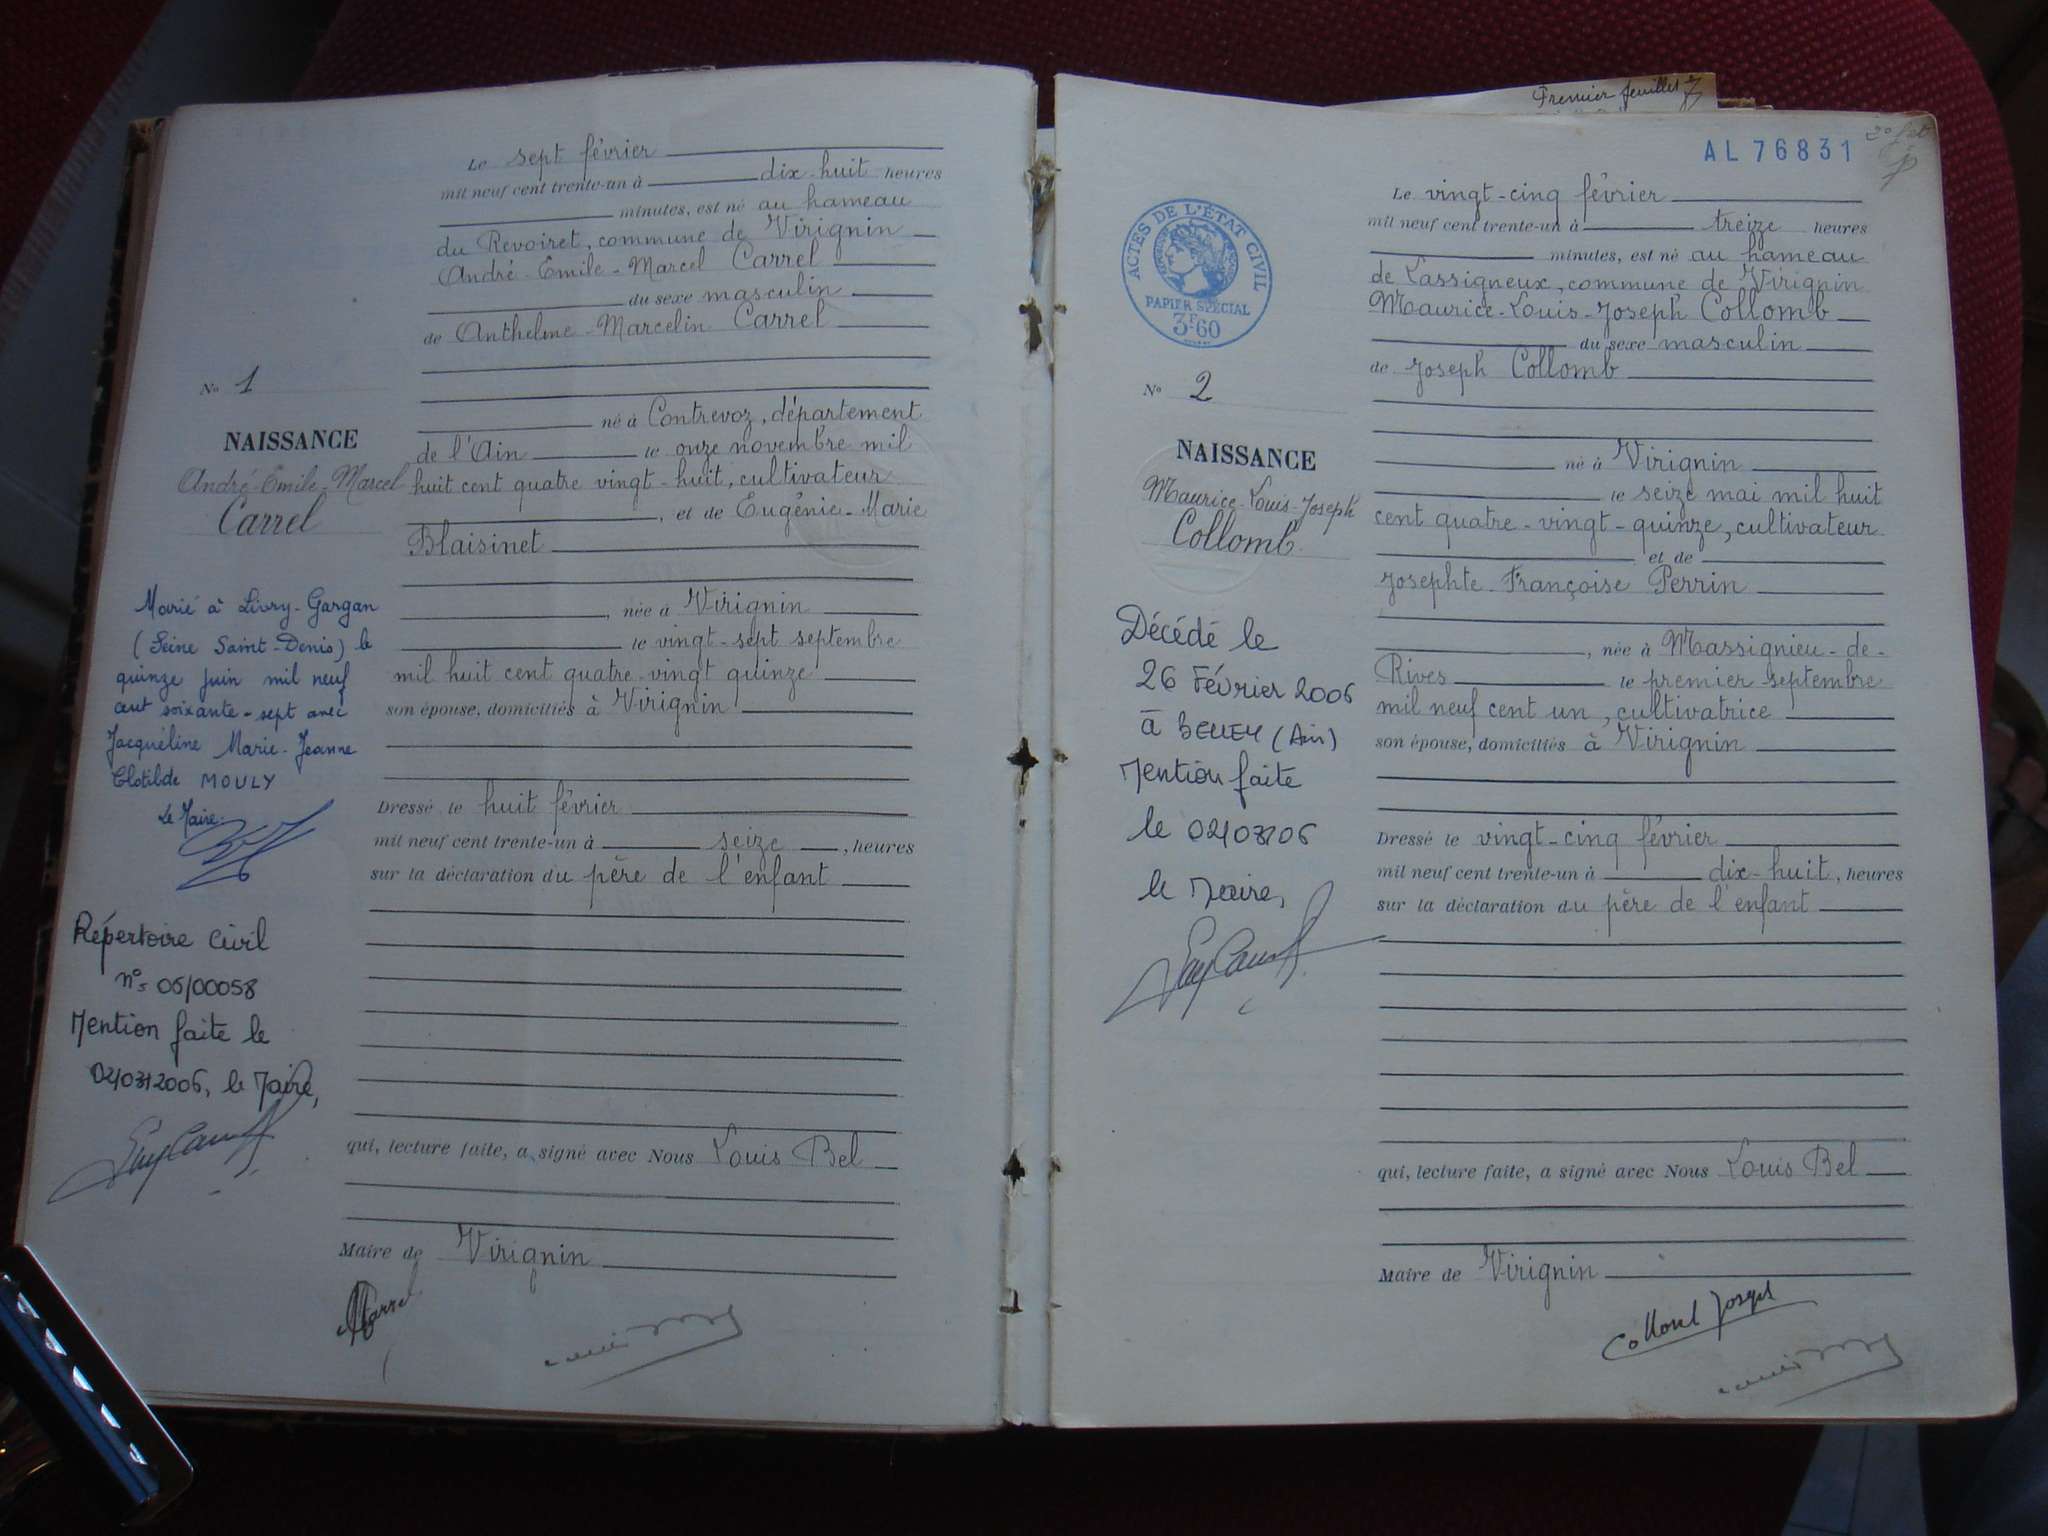 Le sept février
mil neuf cent trente-un à dix-huit heures
minutes, est né au hameau
du Revoiret, commune de Virignin
André-Emile-Marcel Carrel
du sexe masculin
de Anthelme-Marcelin Carrel
né à Contrevoz, département
de l'Ain le onze novembre mil
huit cent quatre vingt-huit, cultivateur
, et de Eugénie-Marie
Blaisinet
, née à Virignin
le vingt-sept septembre
mil huit cent quatre-vingt quinze
son épouse, domiciliés à Virignin
Dressé le huit février
mil neuf cent trente-un à seize, heures
sur la déclaration du père de l'enfant
qui, lecture faite, a signé avec Nous Louis Bel
Maire de Virignin
No 1
NAISSANCE
André-Emile-Marcel
Carrel
Marié à Livry-Gargan
(Seine Saint-Denis) le
quinze juin mil neuf
cent soixante-sept avec
Jacquéline Marie-Jeanne
Clotilde MOULY
Le Maire.
Répertoire civil
n° 05/00058
Mention faite le
02/03/2006, le Maire,
Premier feuillet
AL 76831
ACTES DE L'ÉTAT CIVIL
PAPIER SPÉCIAL
3F60
Le vingt-cinq février
mil neuf cent trente-un à treize heures
minutes, est né au hameau
de Lassigneux, commune de Virignin
Maurice-Louis-Joseph Collomb
du sexe masculin
de Joseph Collomb
né à Virignin
le seize mai mil huit
cent quatre-vingt-quinze, cultivateur
et de
Josephte Françoise Perrin
, née à Massignieu-de-
Rives le premier septembre
mil neuf cent un, cultivatrice
son épouse, domiciliés à Virignin
Dressé le vingt-cinq février
mil neuf cent trente-un à dix-huit, heures
sur la déclaration du père de l'enfant
qui, lecture faite, a signé avec Nous Louis Bel
Maire de Virignin
Collomb Joseph
No 2
NAISSANCE
Maurice-Louis-Joseph
Collomb
Décédé le
26 Février 2006
à BELLEY (Ain)
Mention faite
le 02/03/06
le Maire,